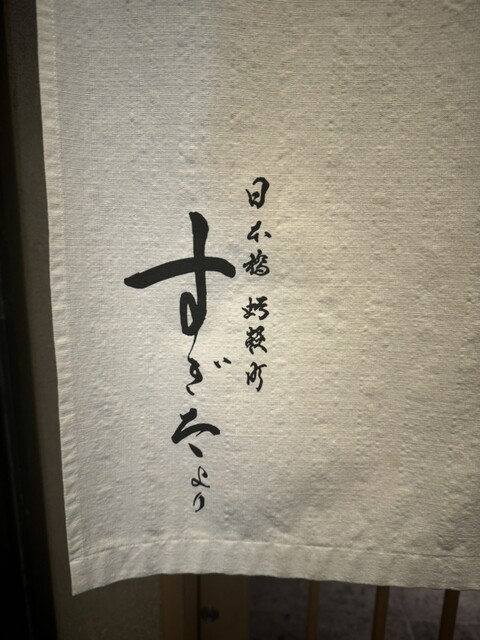 日本橋 蛎殻町
すぎ太より